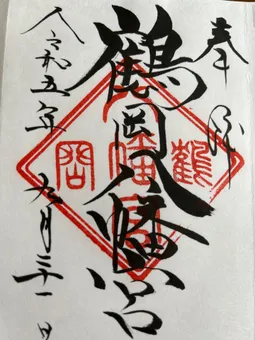 奉拝
鶴岡八幡宮
令和五年九月二十一日
鶴
岡